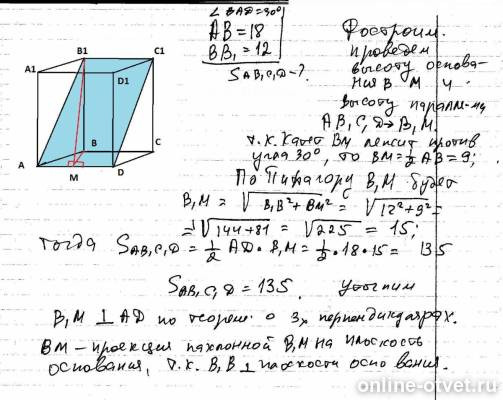 ∠BAD=30°
AB=18
BB₁=12
S AB₁C₁D-?
Построим.
Проведем
высоту основа-
ния ВМ и
высоту паралл-ма
AB₁C₁D → B₁M.
т.к. катет ВМ лежит против
угла 30°, то BM=½AB=9;
По Пифагору B₁M будет
B₁M = √B₁B²+BM² = √12²+9² =
=√144+81 = √225 = 15;
тогда S AB₁C₁D = ½ AD·B₁M = ½·18·15 = 135
S AB₁C₁D = 135. уточним
B₁M ⊥ AD по теореме о 3х перпендикулярах.
BM - проекция наклонной B₁M на плоскость
основания, т.к. B₁B ⊥ плоскости основания.
A1
B1
C1
D1
A
B
C
D
M
online-otvet.ru